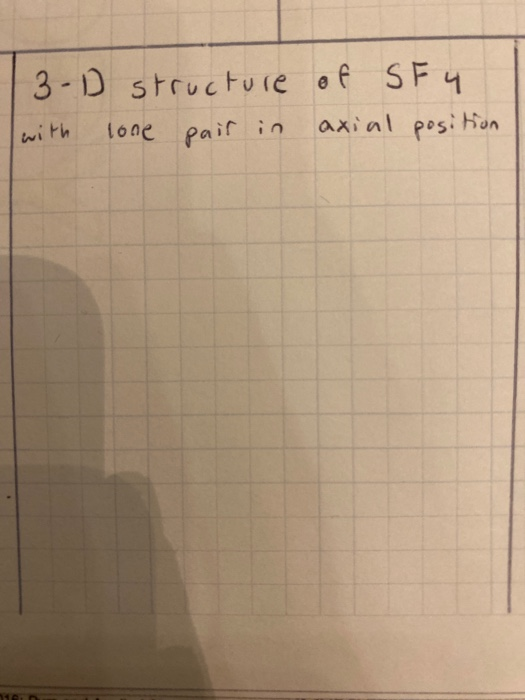 3-D structure of SF4
with lone pair in axial position